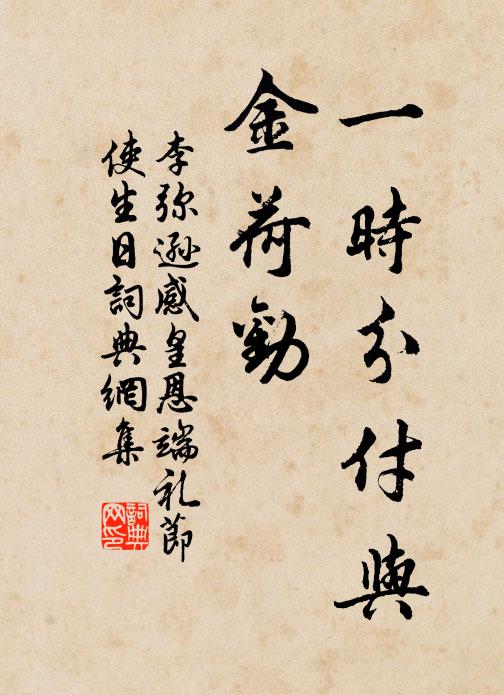 一時分付與
金荷勸
李弥遜感皇恩端礼節
使生日詞典網集
詞典网印